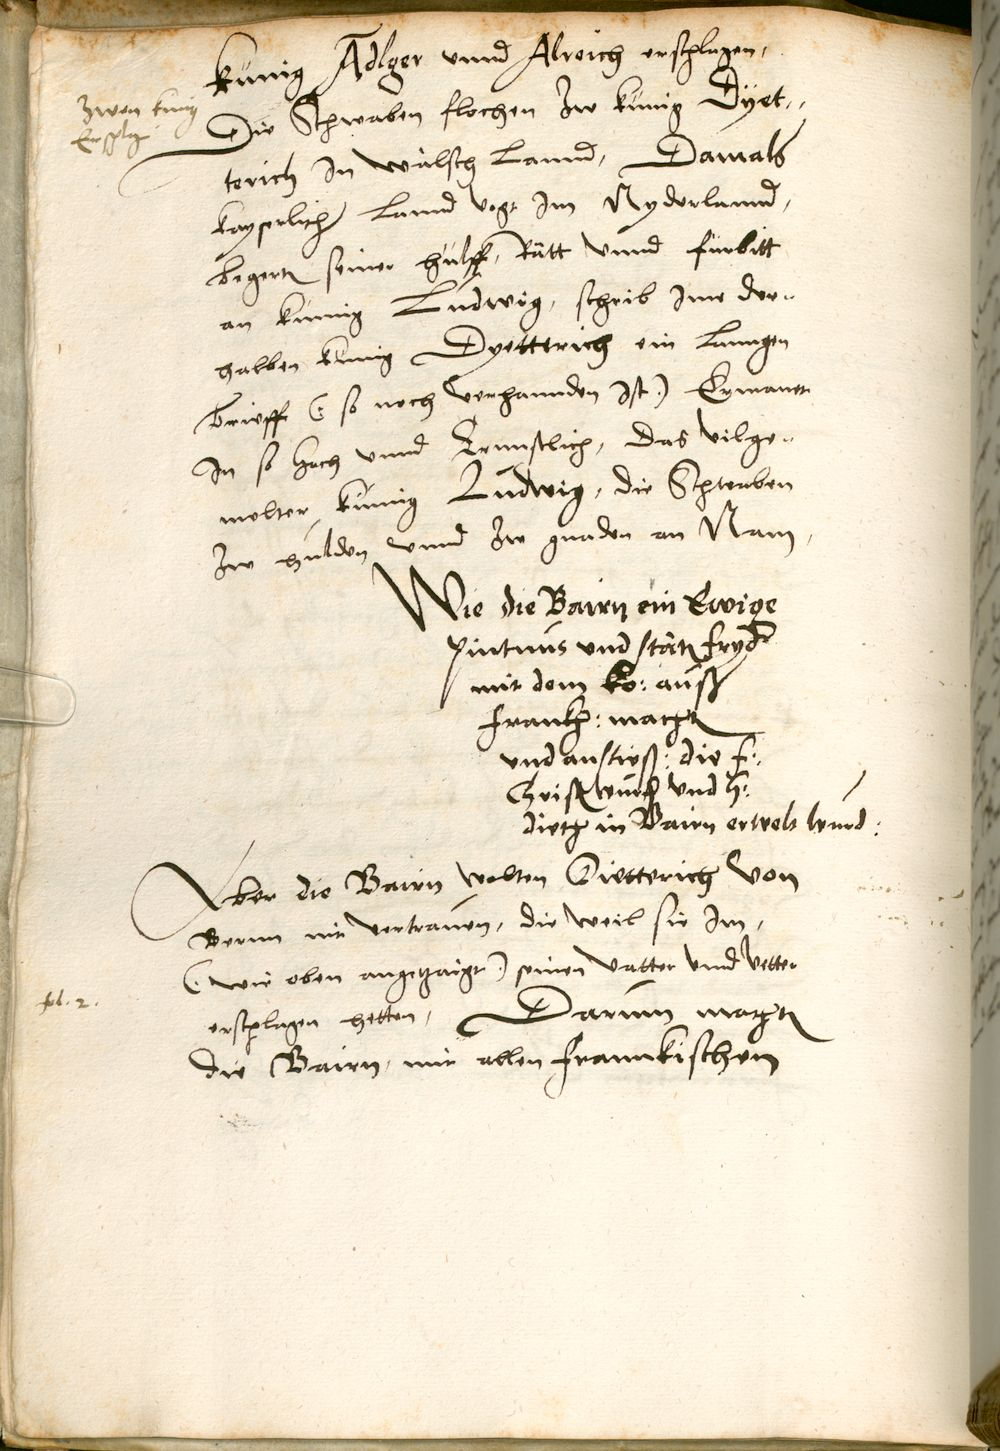 künig Adlger vnnd Alreich erschlagen,
Zwen künig
Erschlagn
Die Schwaben flochen Zw künig Dyet,,
terich In wälsch Lannd, Damals
kayserlicher Lannd vogt Im Nyderlannd,
begertn seiner hülff, Rätt vnnd fürbitt
an künig Ludwig, schrib Ime der,,
halben künig Dyetterich ein Langen
brieff (: so noch verhannden Ist :) Ermanet
In so hoch vnnd Ernnstlich, das vilge,,
melter künig Ludwig, die Schwaben
Zw hulden vnnd Zw gnaden an Nam,
Wie die Bairn ein Ewige
pintnus vnd stätn fryd
mit dem ko: auß
Franckr: machtn
vnd anstieß: die f:
Christ wurd vnd h:
dietz in Bairn erwelt wurd:
Aber die Bairn wolten Dietterich von
Bernn nit vertrauen, die weil sie Im,
(: wie oben angetzaigt :) seinen vatter vnd vetter
fol. 2.
erschlagen hetten, Darum machtn
die Bairn, mit allen Frannkischen